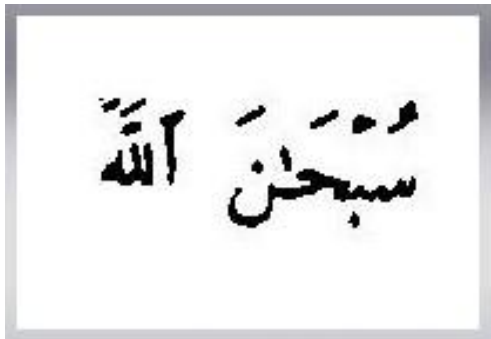 سُبْحَٰنَ ٱللَّهَ